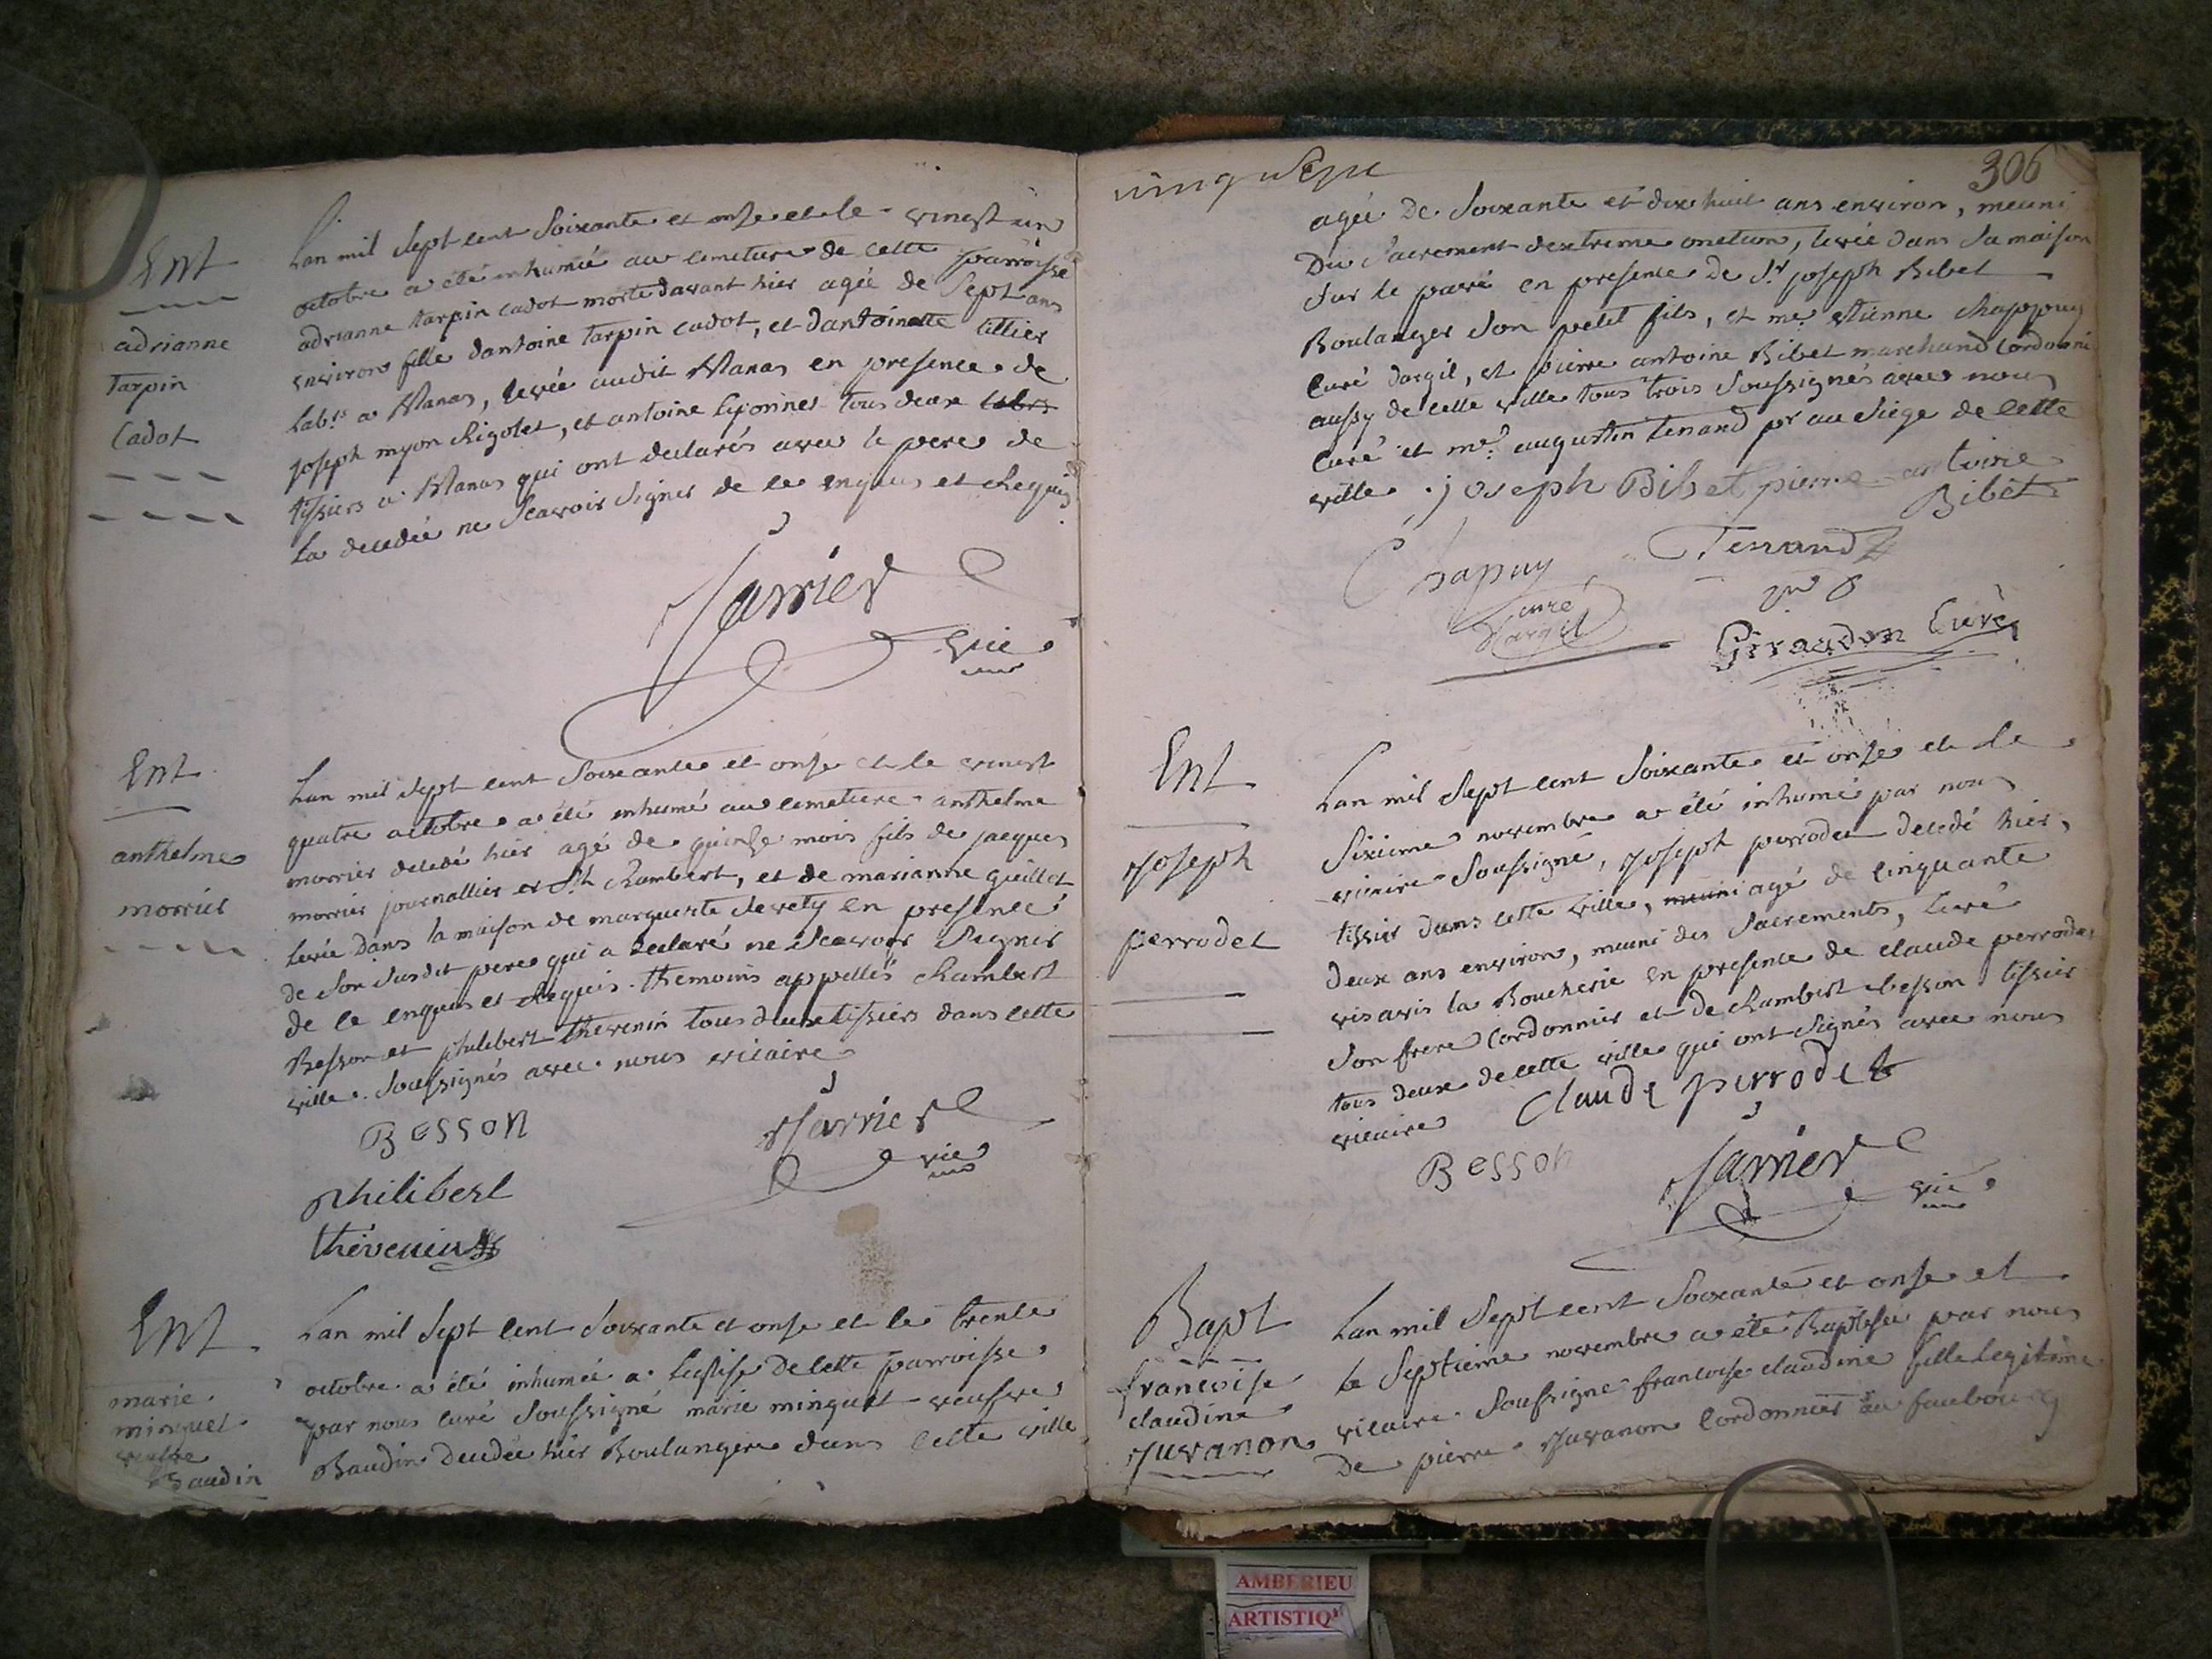 Ent
adrianne
tarpin
Cadot
Lan mil Sept cent Soixante et onse et le vingt un
octobre a été inhumée au cimetiere de cette parroisse
adrianne tarpin cadot morte davant hier agée de Sept ans
environ fille dantoine tarpin cadot, et dantoinette tillier
Labrs a Manas, levée audit Manas en presence de
joseph myon Rigolet, et antoine Lyonnet tous deux
tissiers a Manas qui ont declarés avec le pere de
La decedée ne Scavoir Signer de ce enquis et Requis
Jarrier
vic
Ent
anthelme
morrier
Lan mil Sept cent Soixante et onse et le vingt
quatre octobre a été inhumé au cemetiere anthelme
morrier decedé hier agé de quinse mois fils de jacques
morrier journallier et St Rambert, et de marianne guillot
levée dans la maison de marguerite en presence
de Son Susdit pere qui a declaré ne Scavoir Signer
de ce enquis et Requis. themoins appellés Rambert
Besson et philibert thevenin tous deux tissiers dans cette
ville. Soussignés avec nous vicaire
Besson
Jarrier
vic
philibert
thévenin
Ent
marie
minguet
veufve
Baudin
Lan mil Sept Cent Soixante et onse et le trente
octobre a été inhumée a Leglise de cette parroisse
par nous Curé Soussigné marie minguet veufve
Baudin decedée hier Boulangere dans cette ville
306
agée de Soixante et dix huit ans environ, meuni
Du Sacrement dextreme onction, levée dans Sa maison
Sur le pavé en presence de Sr joseph Bibet
Boulanger Son petit fils, et me etienne Chappuy
Curé dargil, et pierre antoine Bibet marchand Cordonni
aussy de cette ville tous trois Soussignés avec nous
Curé et me augustin tenand pr au Siege de Cette
ville. joseph Bibet pierre antoine
Bibet
Chapuy
Tenand
curé
dargil
Giraudon Curé
Ent
Joseph
perrodet
Lan mil Sept cent Soixante et onse et le
Sixieme novembre a été inhumé par nous
vicaire Soussigné, Joseph perrodet decedé hier,
tissier dans cette ville, muni agé de Cinquante
deux ans environ, muni des Sacrements, levé
vis avis la Boucherie en presence de claude perrodet
Son frere Cordonnier et de Rambert besson tissier
tous deux de cette ville qui ont Signés avec nous
vicaire
Claude perrodet
Besson
Jarrier
vic
Bapt
francoise
claudine
Juvanon
Lan mil Sept cent Soixante et onse et
le Septieme novembre a été Baptisée par nous
vicaire Soussigné francoise claudine fille legitime
De pierre Juvanon Cordonnier au faubourg
AMBERIEU
ARTISTIQ